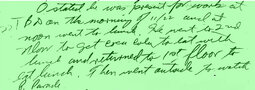 O stated he was present for work at
TBD on the morning of 11/22 and at
noon went to lunch. He went to 2nd
floor to get Coca Cola to eat with
lunch and returned to 1st floor to
eat lunch. Then went outside to watch
P. Parade